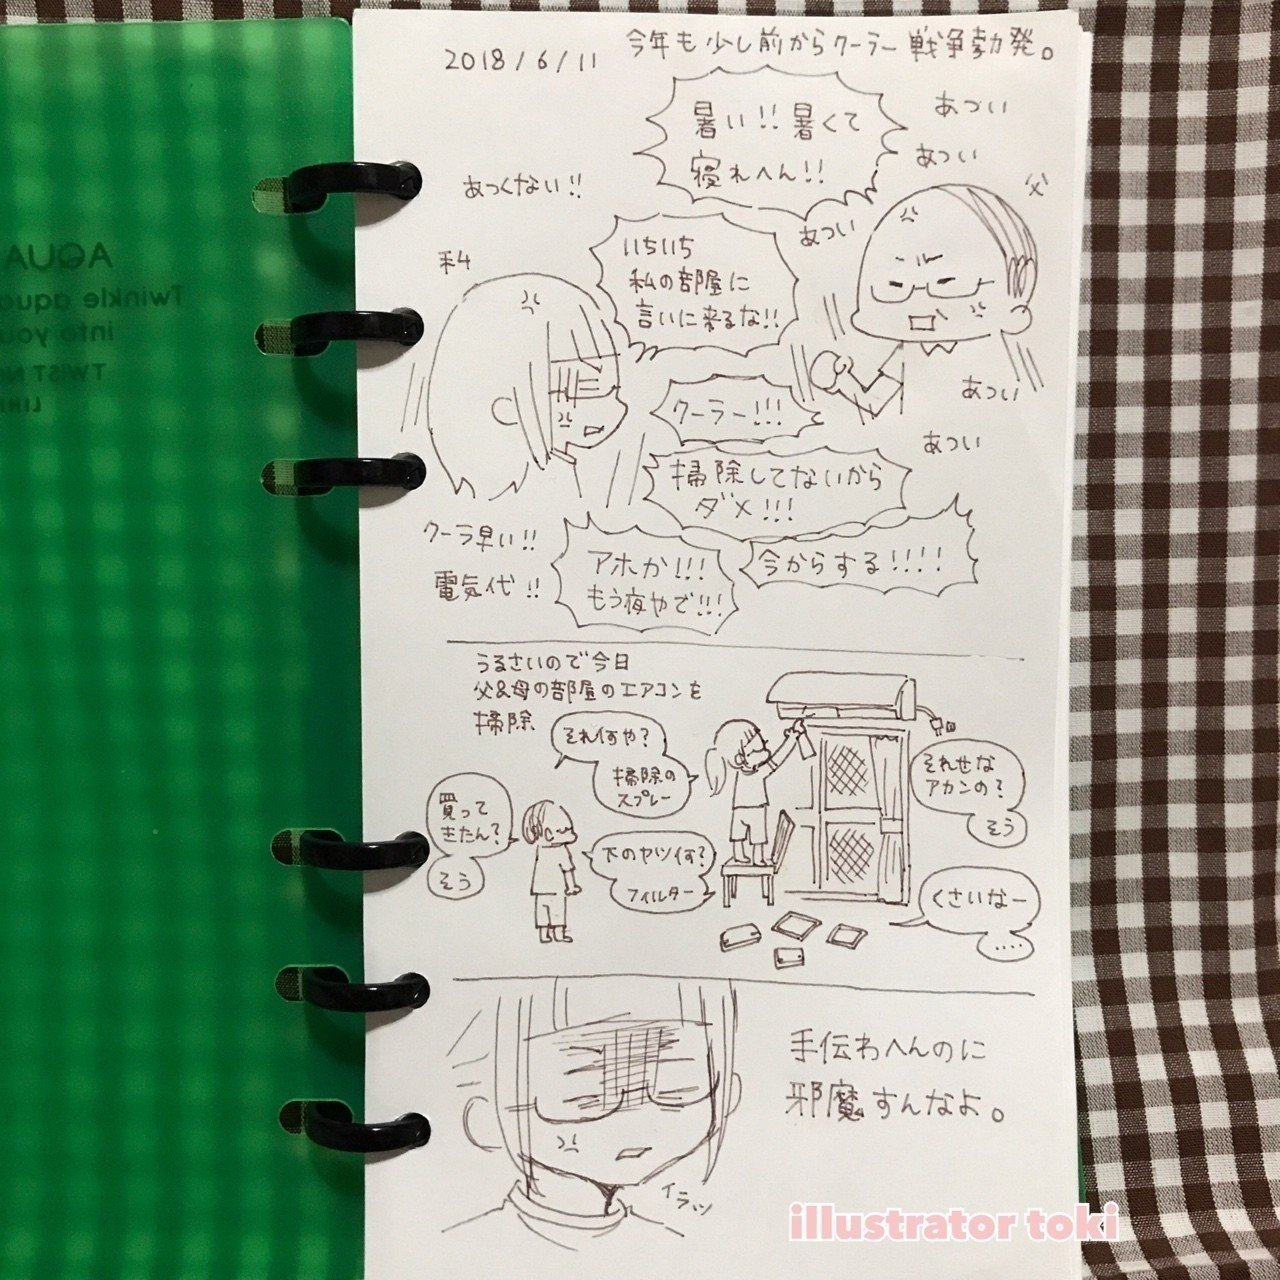 2018/6/11
今年も少し前からクーラー戦争勃発。
暑い!!暑くて
寝れへん!!
あつい
あつい
父
あつくない!!
あつい
私
いちいち
私の部屋に
言いに来るな!!
あつい
クーラー!!!
あつい
掃除してないから
ダメ!!!
クーラ早い!!
電気代!!
今からする!!!!
アホか!!!
もう夜やで!!!
うるさいので今日
父&母の部屋のエアコンを
掃除
それ何や?
掃除の
スプレー
買って
きたん?
そう
下のヤツ何?
フィルター
それせな
アカンの?
そう
くさいなー
....
手伝わへんのに
邪魔すんなよ。
イラッ
illustrator toki
AQUA
Twinkle aqua
into you
TWIST N
LIN